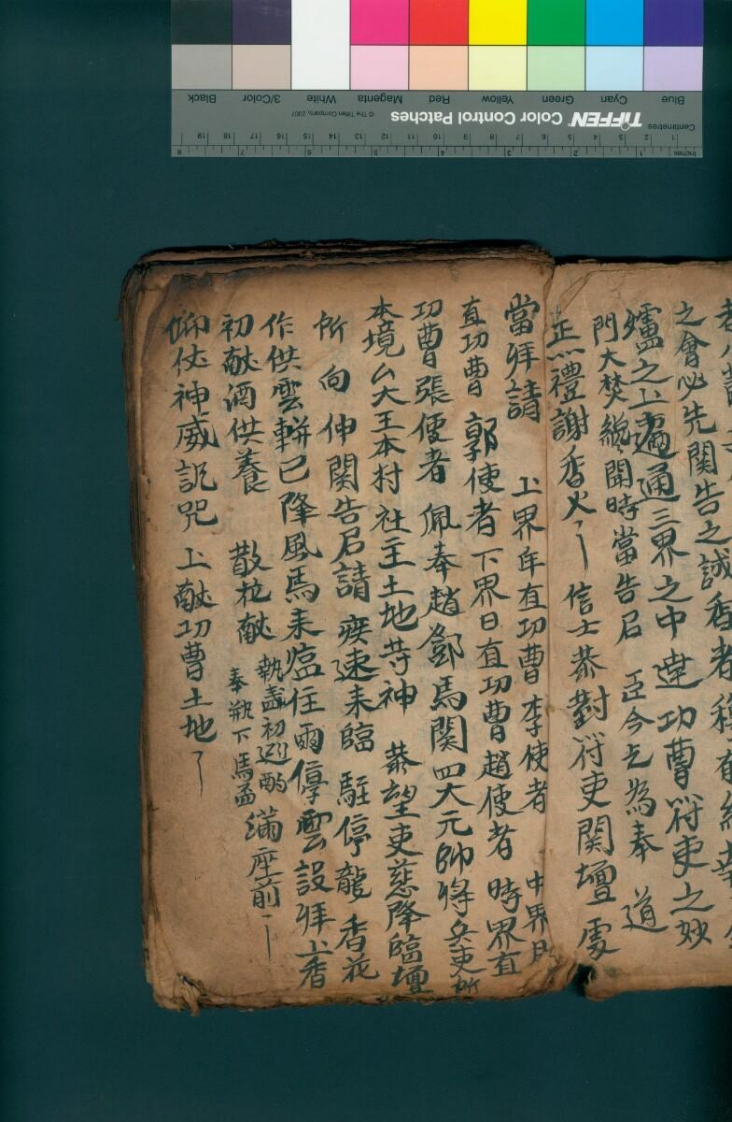 之會必先關告之誠香者積有
爐之上遍通三界之中達功曹符吏之妙
門大焚纔開時當告召 臣今之為奉 道
正禮謝香火 信士恭對符吏關壇處
當拜請 上界年直功曹 李使者 中界月
直功曹 郭使者 下界日直功曹趙使者 時界直
功曹張使者 佩奉趙鄧馬關四大元帥将兵吏所
本境厶大王本村社主土地荨神 恭望吏慈降臨壇
所向伸關告召請 疾速来臨 駐停龍 香花
作供雲輧已降風馬来 住雨停雲設拜上香
初献酒供養 散花献 執盞初巡酌 奉瓶下馬盃 滿座前
仰仗神威訊咒 上献功曹土地
Black 3/Color White Magenta Red Yellow Green Cyan Blue
TIFFEN Color Control Patches © The Tiffen Company, 2007
Centimetres
Inches